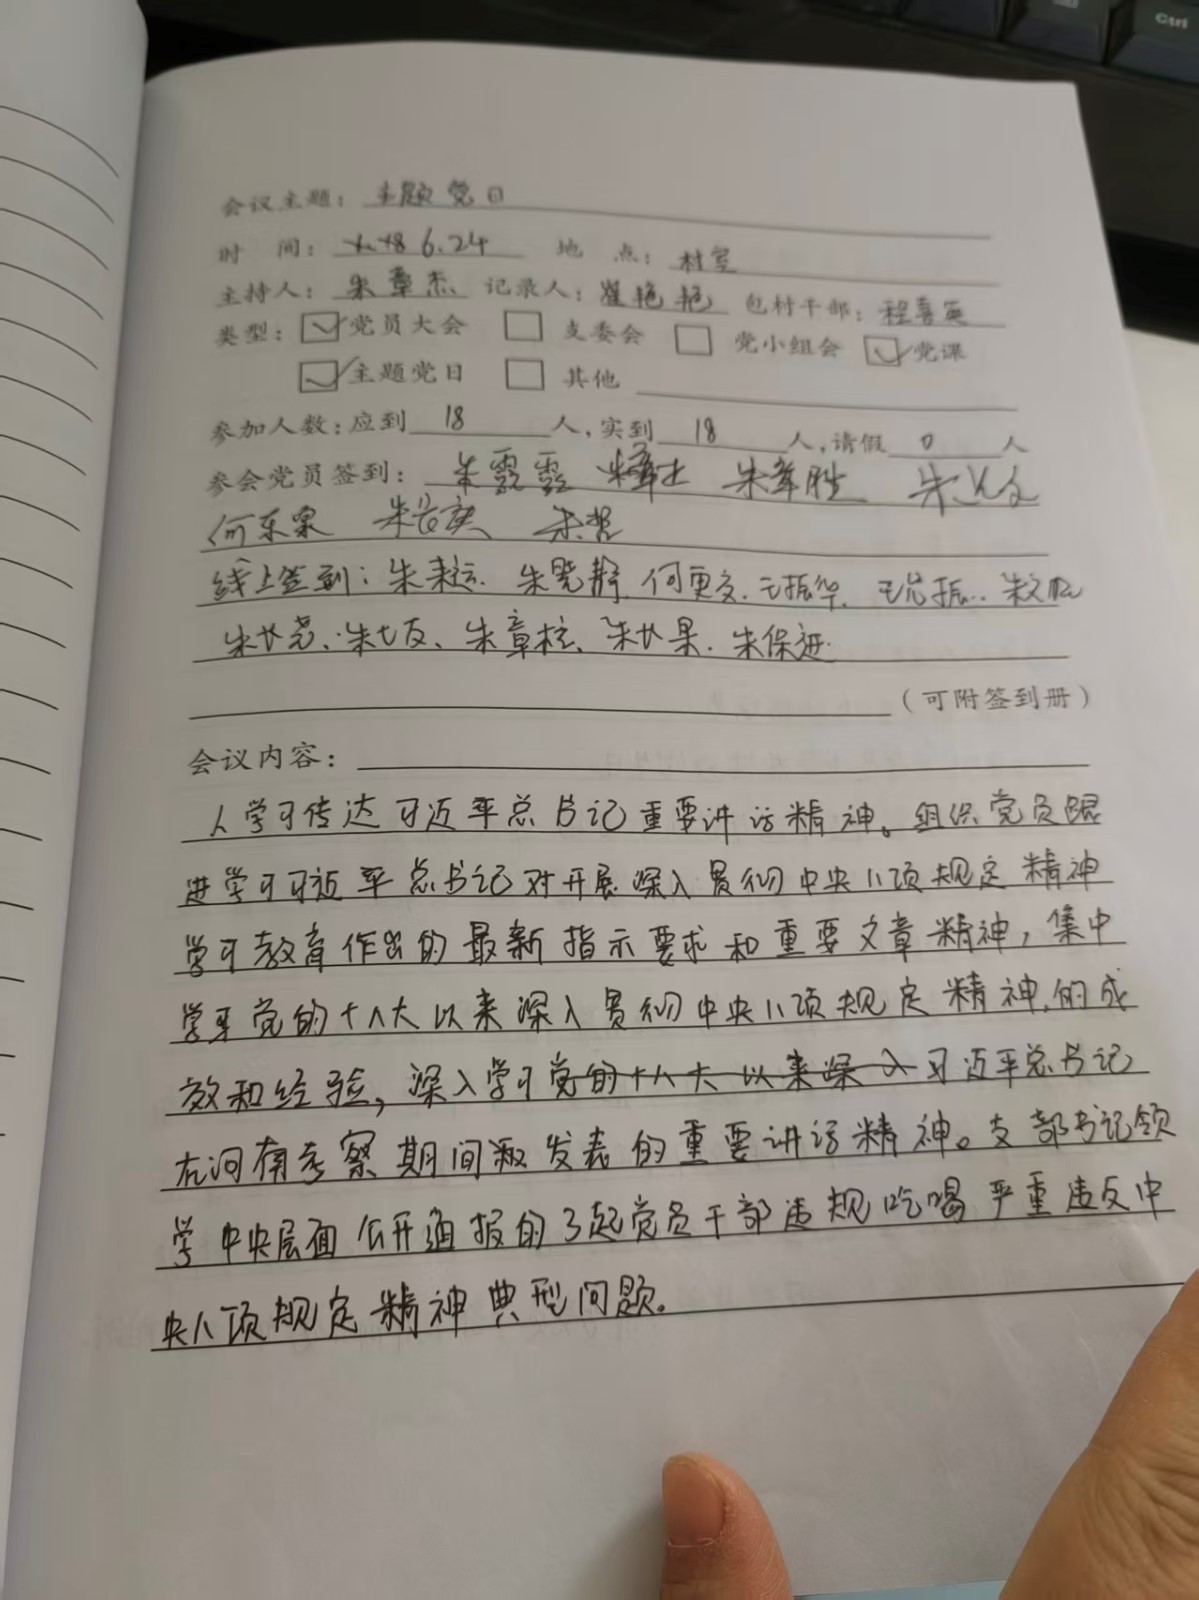 Ctrl
会议主题：主题党日
时 间：6.24 地 点：村室
主持人：朱章杰 记录人：崔艳艳 包村干部：程喜英
类型：党员大会 支委会 党小组会 党课
主题党日 其他
参加人数：应到 18 人，实到 18 人，请假 0 人
参会党员签到：朱露露 朱章胜
何东泉 朱哲
线上签到：朱来运 朱晓静 何更文 王振华
朱长尧、朱七友、朱章柱、朱长果、朱保进
（可附签到册）
会议内容：
1、学习传达习近平总书记重要讲话精神。组织党员跟
进学习习近平总书记对开展深入贯彻中央八项规定精神
学习教育作出的最新指示要求和重要文章精神，集中
学习党的十八大以来深入贯彻中央八项规定精神的成
效和经验，深入学习党的十八大以来深入习近平总书记
在河南考察期间发表的重要讲话精神。支部书记领
学中央层面公开通报的3起党员干部违规吃喝严重违反中
央八项规定精神典型问题。